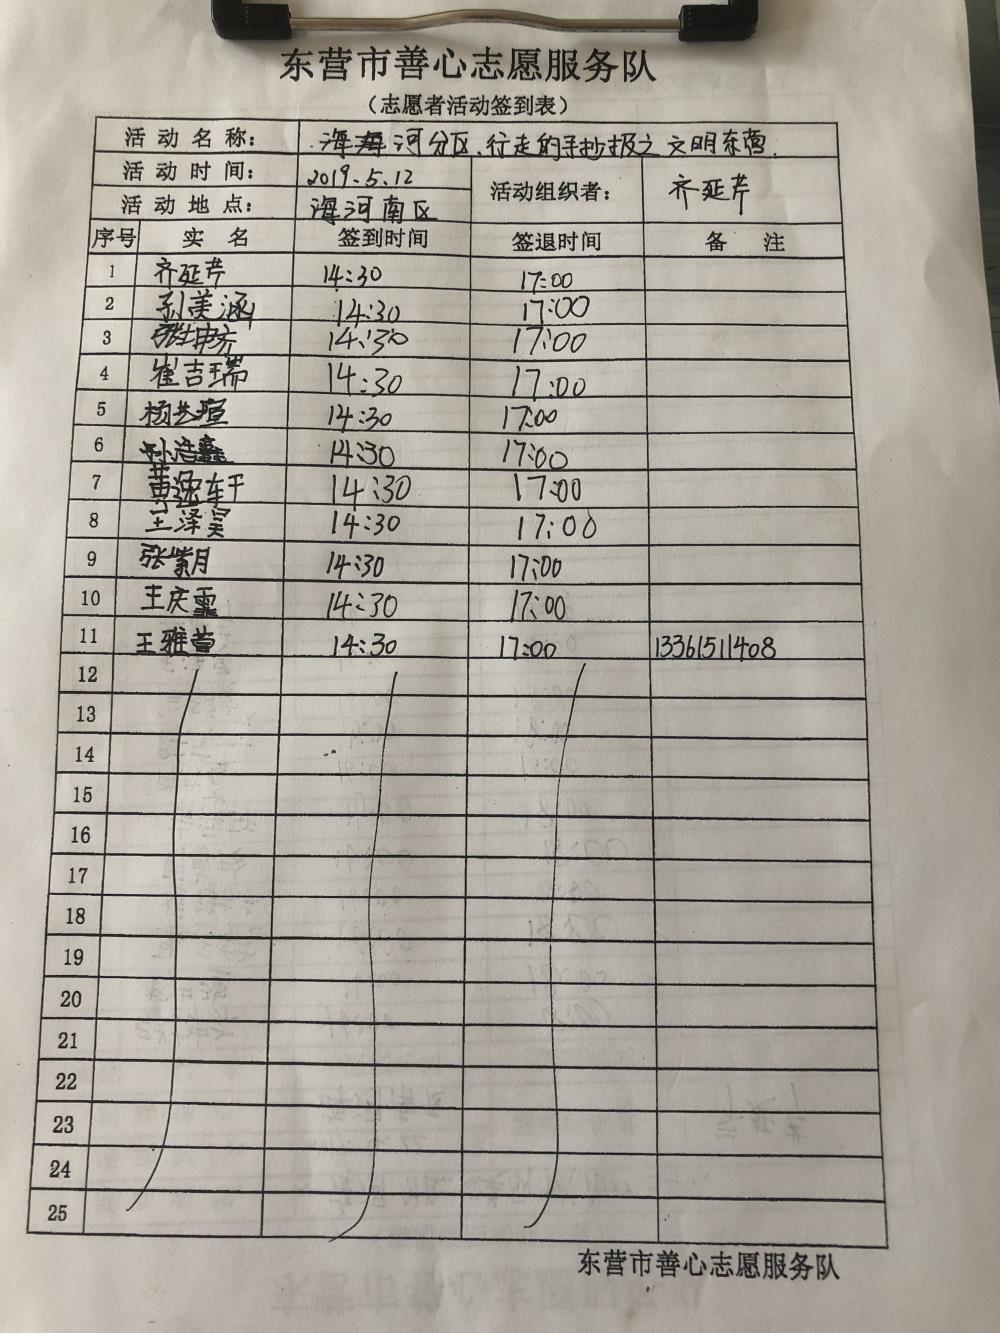 东营市善心志愿服务队
（志愿者活动签到表）
活动名称： 海河分区、行走的手抄报之文明东营.
活动时间： 2019.5.12 活动组织者： 齐延芹
活动地点： 海河南区
序号 实名 签到时间 签退时间 备注
1 齐延芹 14:30 17:00
2 孙美涵 14:30 17:00
3 14:30 17:00
4 崔吉瑞 14:30 17:00
5 杨艺瑄 14:30 17:00
6 孙浩鑫 14:30 17:00
7 曹逸轩 14:30 17:00
8 王泽昊 14:30 17:00
9 张紫月 14:30 17:00
10 王庆 14:30 17:00
11 王雅萱 14:30 17:00 13361511408
12
13
14
15
16
17
18
19
20
21
22
23
24
25
东营市善心志愿服务队